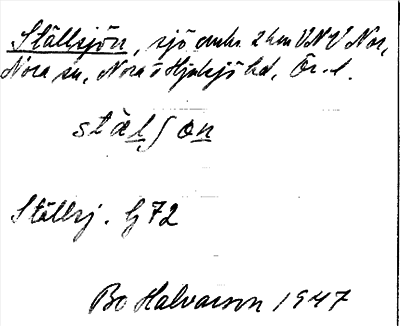 Ställsjön, sjö omkr. 2 km VNV Nor,
Nora sn, Nora o Hjulsjö hd, Ör. l.
stàlʃon
Ställsj. Gj 72
Bo Halvarson 1947